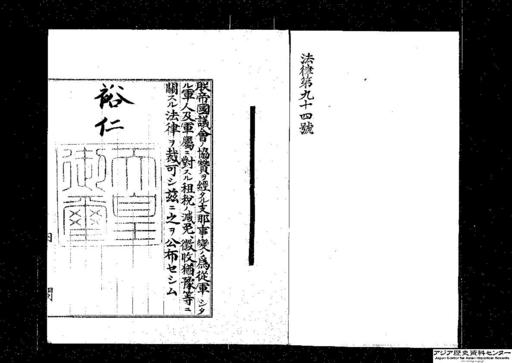 法律第九十四號
朕帝國議會ノ協贊ヲ經タル支那事變ノ爲從軍シタ
ル軍人及軍屬ニ對スル租稅ノ減免、徵收猶豫等ニ
關スル法律ヲ裁可シ玆ニ之ヲ公布セシム
裕仁
天皇
御璽
内 閣
アジア歴史資料センター
Japan Center for Asian Historical Records